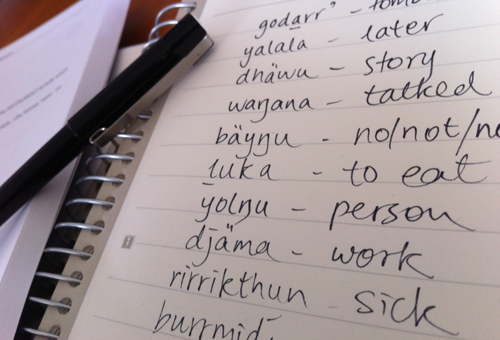 godarr' -
yalala - later
dhäwu - story
waŋana - talked
bäyŋu - no/not/
ḻuka - to eat
yolŋu - person
djäma - work
rirrikthun - sick